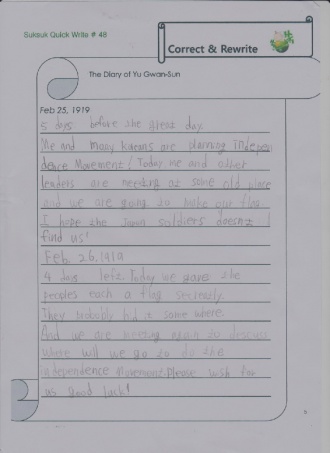 Suksuk Quick Write # 48
Correct & Rewrite
The Diary of Yu Gwan-Sun
Feb 25, 1919
5 days before the great day.
Me and many Koreans are planning indepen
dence Movement! Today me and other
leaders are meeting at some old place
and we are going to make our flag.
I hope the Japan soldiers doesnt
find us!
Feb. 26, 1919
4 days left. Today we gaves the
peoples each a flag secretly.
They probably hid it some where.
And we are meeting again to discuss
where will we go to do the
independence Movement. please wish for
us good luck!